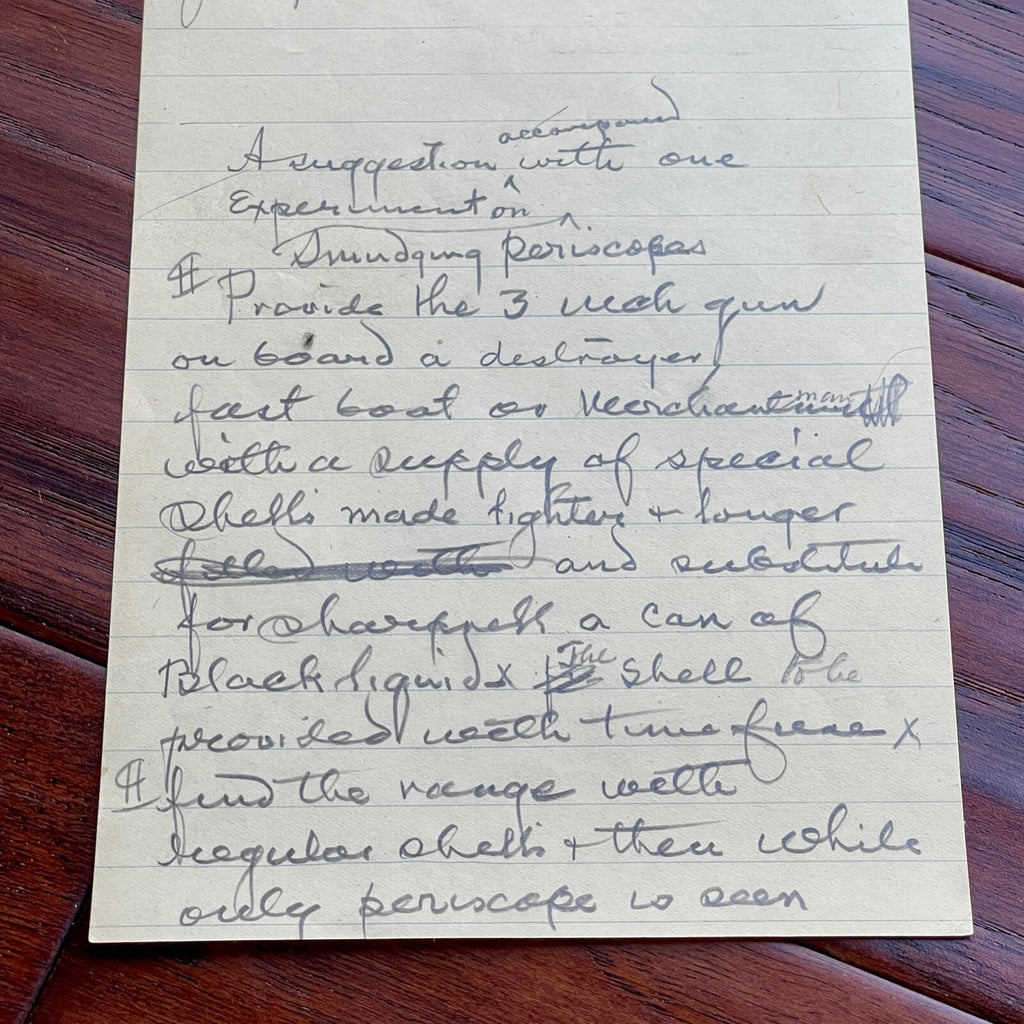 accompanied
A suggestion ^ with one
Experiment on ^
Smudging periscopes
¶ Provide the 3 inch gun
on board a destroyer,
fast boat or Merchantman
with a supply of special
Shells made lighter + longer
filled with and substitute
for sharpnell a can of
Black liquid x The Shell to be
provided with time fuse x
¶ find the range with
regular shells + then while
only periscope is seen